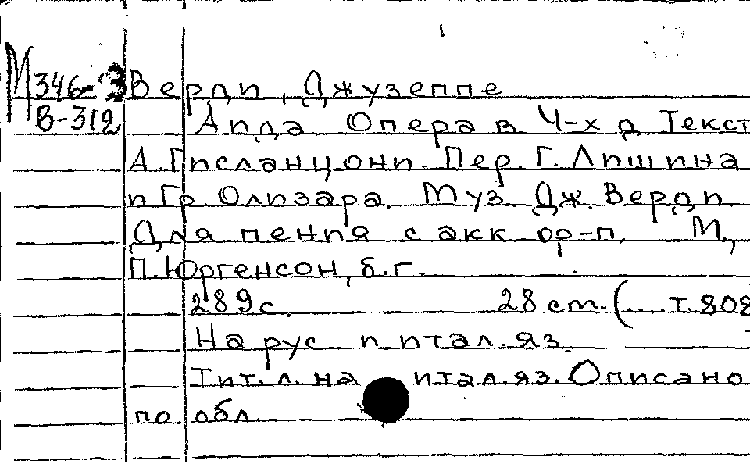 М346-3 Верди, Джузеппе
В-312 Аида Опера в 4-х д Текст
А. Гисланцони. Пер. Г. Лишина
и Гр. Олизара. Муз. Дж. Верди
Для пения с акк ор-п. М.,
П. Юргенсон, б.г.
289 с. 28 cm. (... т. 808
На рус и итал. яз.
Тит. л. на итал. яз. Описано
по обл